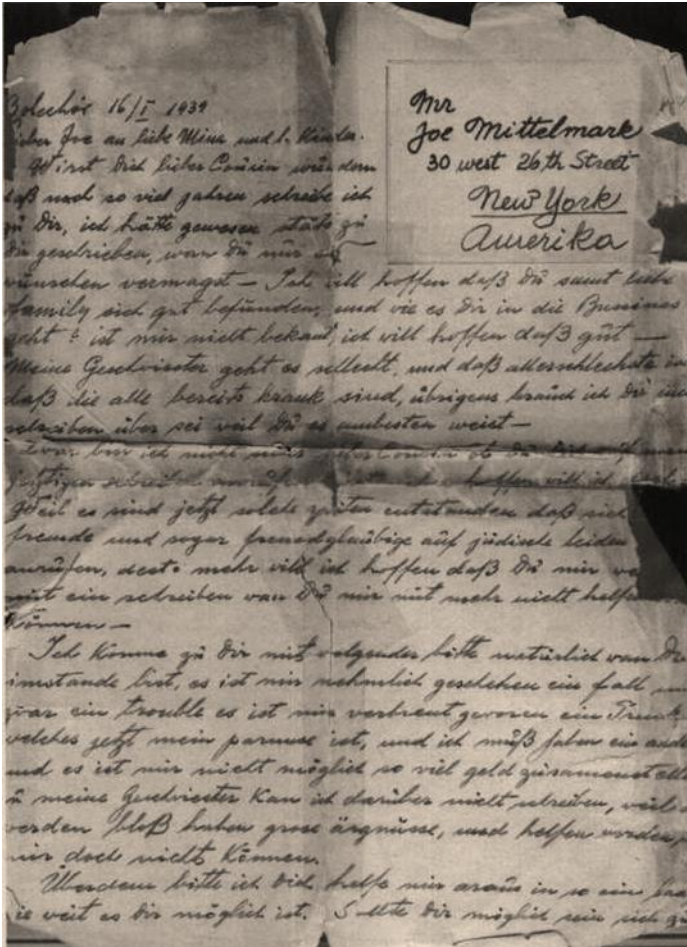 Bolechów 16/I 1939
Lieber Joe an liebe Mina und l. Kinder.
Mr
Joe Mittelmark
30 west 26th Street
New York
Amerika
Wirst Dich lieber Cousin wundern
daß nach so viel jahren schreibe ich
zu Dir, ich hätte gewesen stäts zu
Dir geschrieben, wan Du mir
wünschen vermagst – Ich will hoffen daß Du samt liebe
family sich gut befünden, und wie es Dir in die Bussines
geht? ist mir nicht bekant, ich will hoffen daß gut —
Meine Geschwister geht es schlecht, und daß allerschlechste
daß die alle bereits krank sind, übrigens brauch ich Dir
schreiben über sei weil Du es ambesten weist —
Zwar bin ich nicht Cousin ob Du
jetztigen schreiben hoffen will ich
Weil es sind jetzt solche zeiten entstanden daß sich
freunde und sogar fremdgläubige auf jüdische leiden
anrufen, desto mehr will ich hoffen daß Du mir
mit ein schreiben wan Du mir mit mehr nicht helfen
Können —
Ich Komme zu Dir mit volgender bitte natürlich wan Du
imstande bist, es ist mir nehmlich geschehen ein fall
zwar ein trouble es ist mir verbrent geworen ein Truck
welches jetzt mein parnuse ist, und ich muß haben ein
und es ist mir nicht möglich so viel geld zusamenstellen
u meine Geschwister Kan ich darüber nicht schreiben, weil
werden bloß haben grose ärgnüsse, und helfen werden
mir doch nichts Können.
Überdem bitte ich Dich helfe mir araus in so ein
wie weit es Dir möglich ist. Sollte Dir möglich sein sich